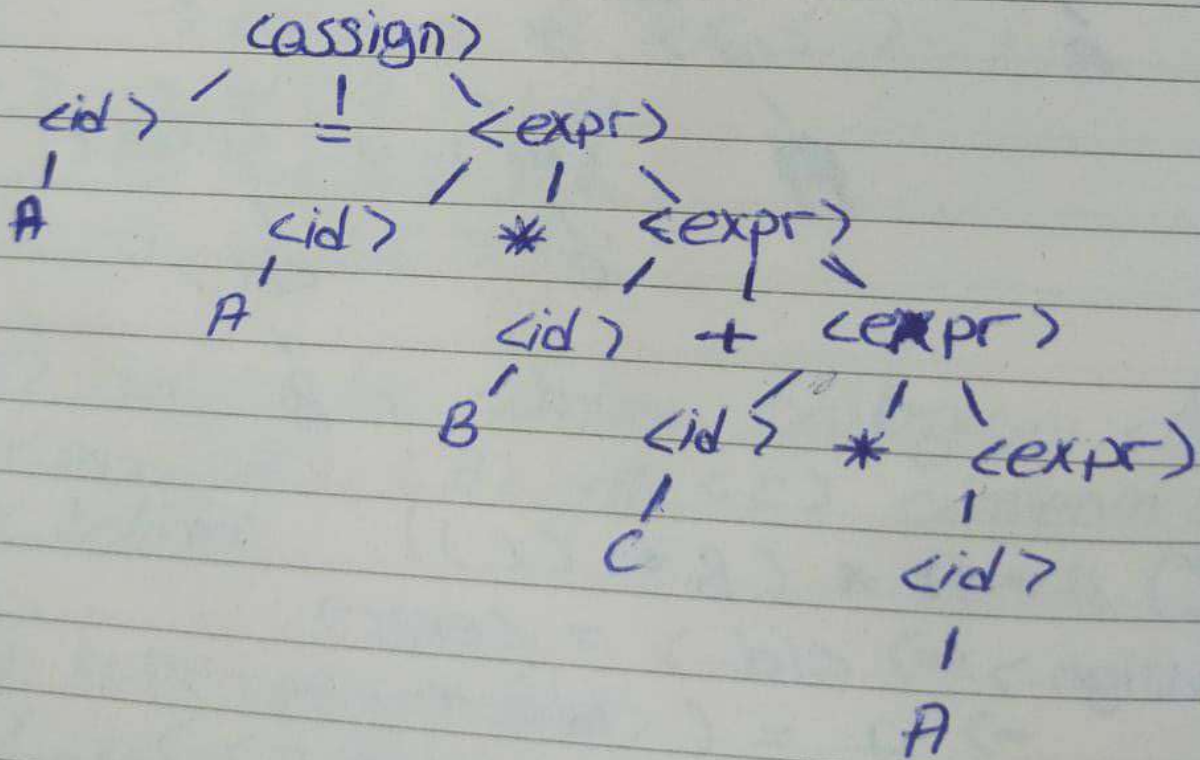 <assign>
<id> = <expr>
A <id> * <expr>
A <id> + <expr>
B <id> * <expr>
C <id>
A